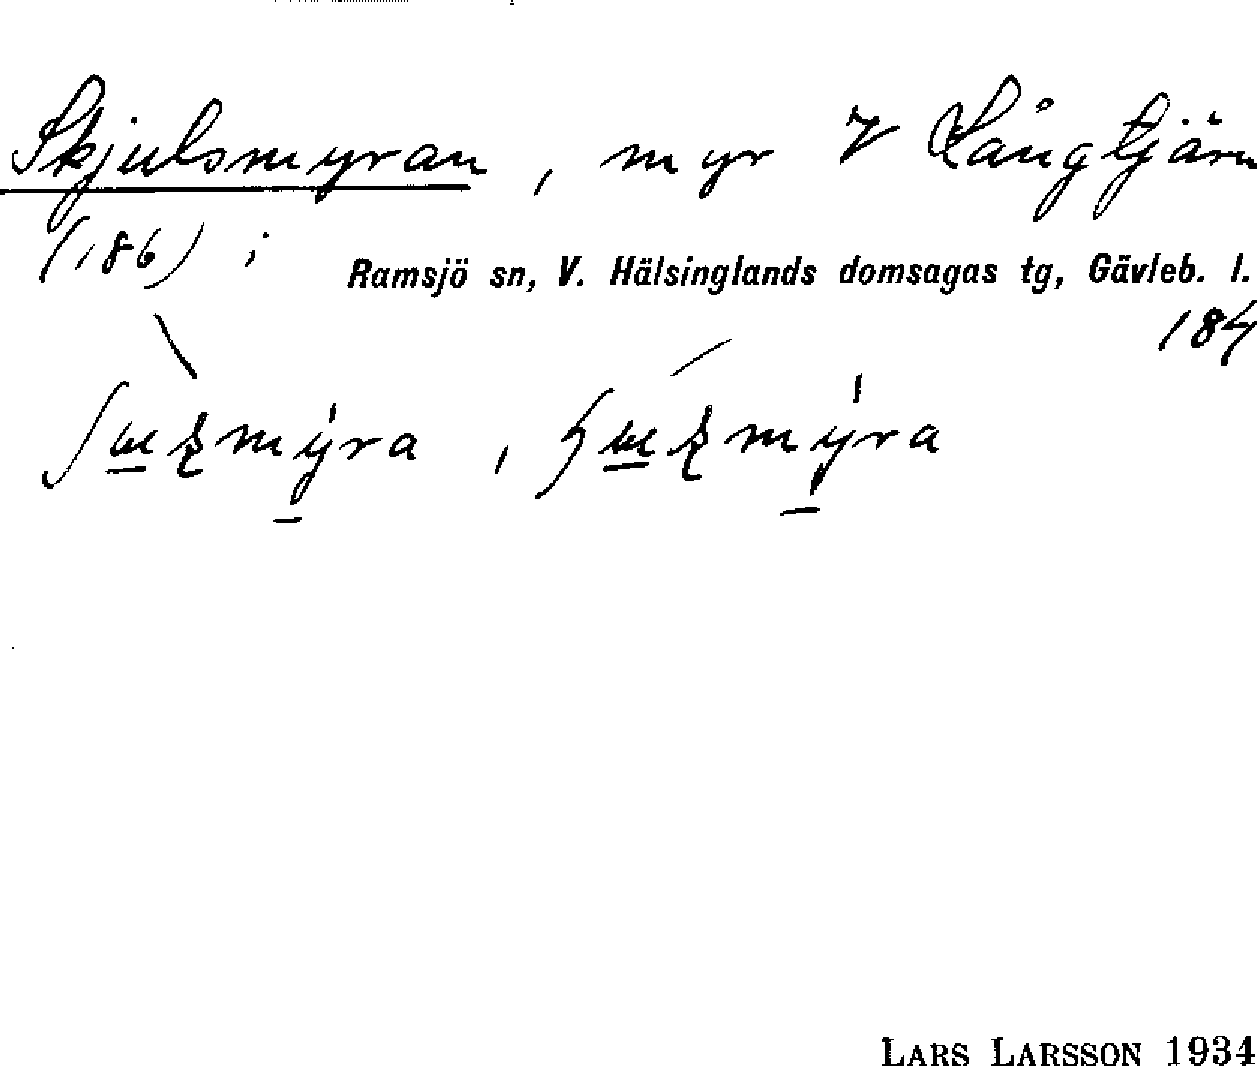 Skjulsmyran, myr V Långtjärn
(186) i
Ramsjö sn, V. Hälsinglands domsagas tg, Gävleb. l.
184
LARS LARSSON 1934